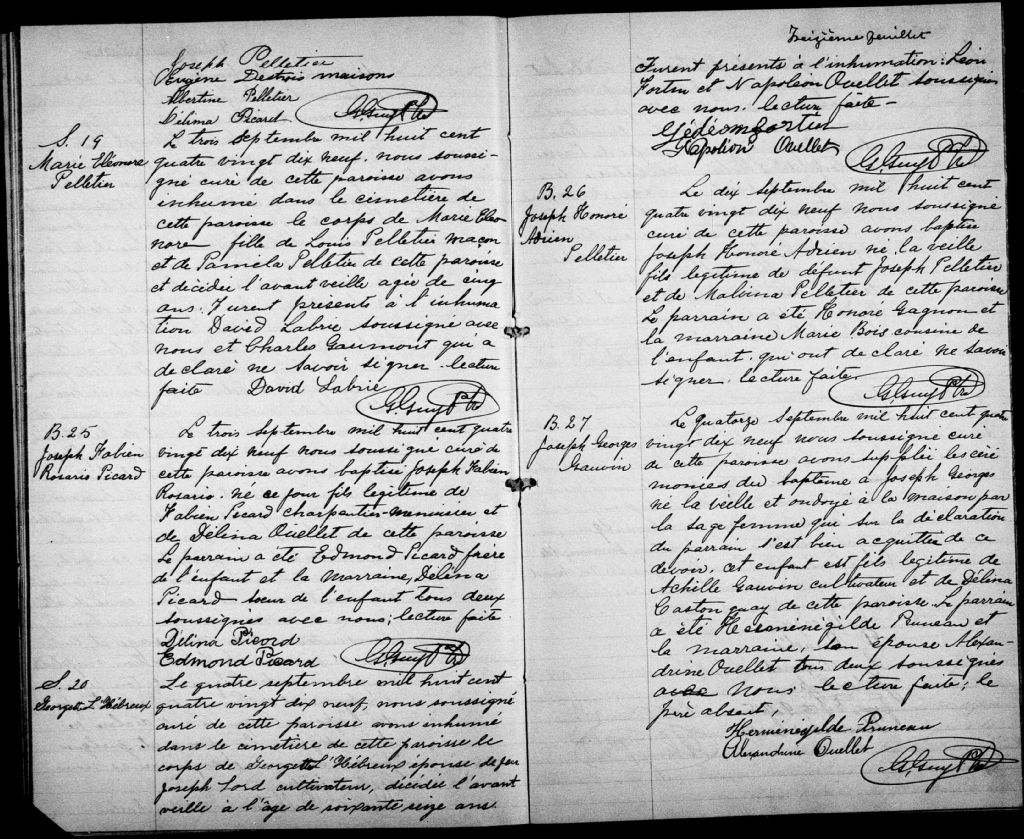 Joseph Pelletier
Eugène Destroismaisons
Albertine Pelletier
Délima Picard G. Guy Ptre
S. 19
Marie Eléonore
Pelletier
Le trois septembre mil huit cent
quatre vingt dix neuf. nous soussi-
gné curé de cette paroisse avons
inhumé dans le cimetière de
cette paroisse le corps de Marie Eléo
nore fille de Louis Pelletier maçon
et de Paméla Pelletier de cette paroisse
et décidée l'avant veille agée de cinq
ans. Furent présents à l'inhuma
tion David Labrie soussigné avec
nous et Charles Gaumont qui a
declaré ne savoir signer. lecture
faite David Labrie
G. Guy Ptre
B. 25
Joseph Fabien
Rosario Picard
Le trois septembre mil huit cent quatre
vingt dix neuf nous soussigné curé de
cette paroisse avons baptisé Joseph Fabien
Rosario. né ce jour fils legitime de
Fabien Picard charpentier-menuisier et
de Délina Ouellet de cette paroisse
Le parrain a été Edmond Picard frère
de l'enfant et la marraine, Délina
Picard sœur de l'enfant tous deux
soussignés avec nous; lecture faite
Délina Picard
Edmond Picard G. Guy Ptre
S. 20
Georgette L'Hébreux
Le quatre septembre mil huit cent
quatre vingt dix neuf, nous soussigné
curé de cette paroisse avons inhumé
dans le cimetière de cette paroisse le
corps de Georgette L'Hébreux épouse de feu
Joseph Lord cultivateur, décidée l'avant
veille à l'âge de soixante seize ans.
Treizième feuillet
Furent présents à l'inhumation: Léon
Fortin et Napoléon Ouellet soussignés
avec nous. lecture faite -
Gédéon Fortin
Napoléon Ouellet
G. Guy Ptre
B. 26
Joseph Honoré
Adrien
Pelletier
Le dix septembre mil huit cent
quatre vingt dix neuf nous soussigné
curé de cette paroisse avons baptisé
Joseph Honoré Adrien né la veille
fils legitime de défunt Joseph Pelletier
et de Malvina Pelletier de cette paroisse
Le parrain a été Honoré Gagnon et
la marraine Marie Bois cousine de
l'enfant. qui ont declaré ne savoir
signer. lecture faite.
G. Guy Ptre
B. 27
Joseph Georges
Gauvin
Le quatorze septembre mil huit cent quatre
vingt dix neuf nous soussigné curé
de cette paroisse avons supplée les céré
monies du baptême a Joseph Georges
né la veille et ondoyé à la maison par
la sage femme qui sur la déclaration
du parrain s'est bien acquittée de ce
devoir. cet enfant est fils legitime de
Achille Gauvin cultivateur et de Délina
Castonguay de cette paroisse. Le parrain
a été Herménégilde Pruneau et
la marraine, son épouse Alexan-
drine Ouellet tous deux soussignés
avec nous lecture faite; le
père absent,
Herménégilde Pruneau
Alexandrine Ouellet
G. Guy Ptre